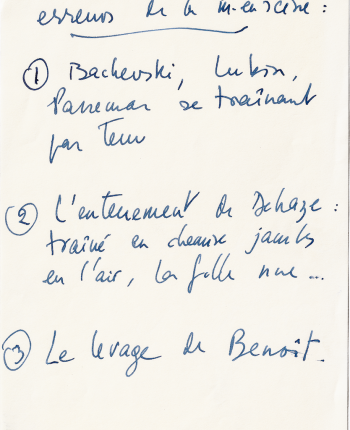 erreurs de la m. en scène :
① Bachevski, Lubin,
Panemar se traînant
par terre
② L'enterrement de Dehaze :
traîné en chemise jambes
en l'air, la fille nue ...
③ Le levage de Benoît.